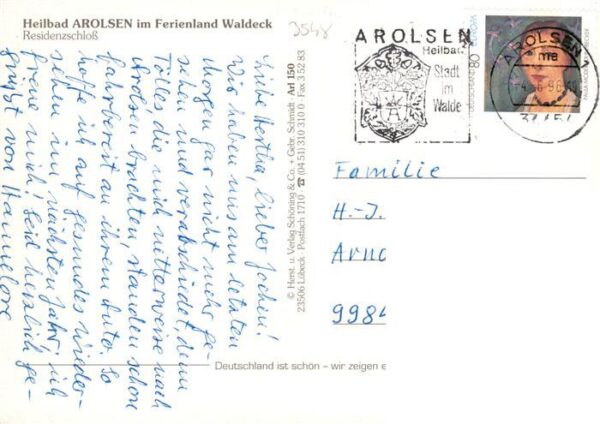 Heilbad AROLSEN im Ferienland Waldeck
Residenzschloß
3548
Liebe Hertha, lieber Jochen!
Wir haben uns am letzten
Morgen gar nicht mehr ge-
sehen und verabschiedet, denn
Tölles, die mich netterweise nach
Arolsen brachten, standen schon
fahrbereit an ihrem Auto. So
hoffe ich auf gesundes Wieder-
sehen im nächsten Jahr; ich
freue mich! Seid herzlich ge-
grüßt von Hannelore
© Herst. u. Verlag Schöning & Co. + Gebr. Schmidt Arl 150
23506 Lübeck · Postfach 1710 · ☎ (04 51) 310 310 0 · Fax 3 52 83
AROLSEN
Heilbad
Stadt
im
Walde
AROLSEN 1
me
34454
80
Familie
H.-J.
Arno
9984
Deutschland ist schön – wir zeigen e